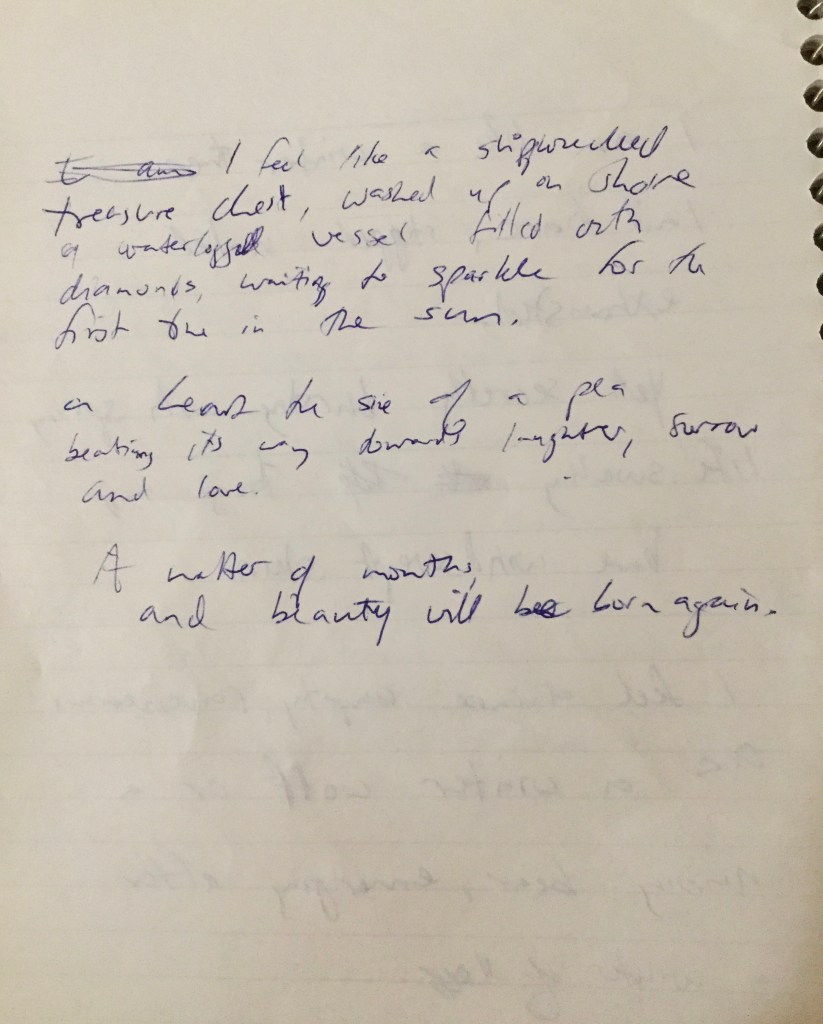 I am I feel like a shipwrecked
treasure chest, washed up on shore
a waterlogged vessel filled with
diamonds, waiting to sparkle for the
first time in the sun.
a heart the size of a pea
beating its way towards laughter, sorrow
and love.
A matter of months,
and beauty will be born again.